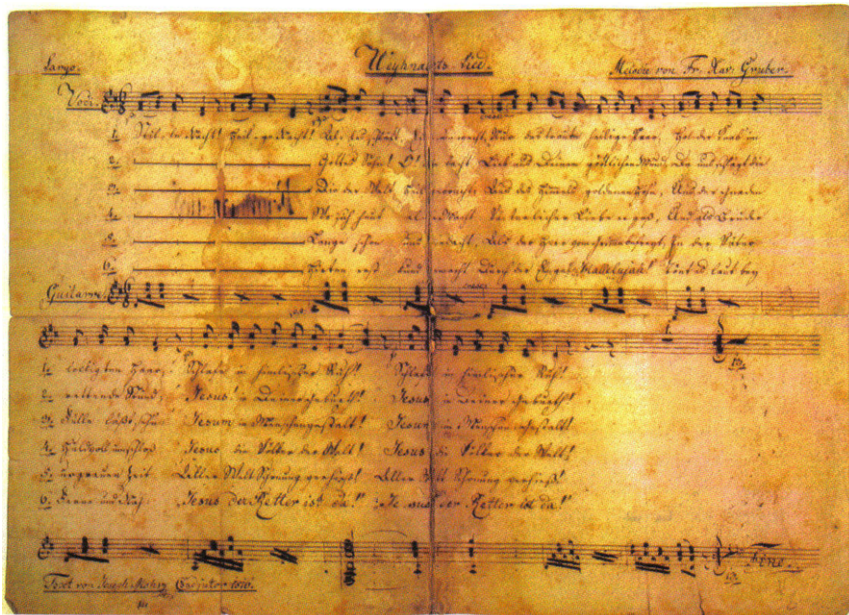 Largo. Weyhnachts-Lied. Melodie von Fr. Xav. Gruber.
Voce.
1. Stille Nacht! Heilige Nacht! Alles schläft. Nur das traute heilige Paar. Holder Knab im
2. Gottes Sohn! O! wie lacht Lieb aus deinem göttlichen Mund, Da uns schlägt die
3. Die der Welt Heil gebracht, Aus des Himmels goldenen Höhn, Uns der Gnaden
4. Wo sich heut alle Macht Väterlicher Liebe ergoß, Und als Bruder
5. Lange schon uns bedacht, Als der Herr vom Grimme befreyt, In der Väter
6. Hirten erst kund gemacht Durch der Engel Hallelujah! Tönt es laut bey
Guitarre.
1. lockigten Haar, Schlafe in himmlischer Ruh! Schlafe in himmlischer Ruh!
2. rettende Stund, Jesus! in Deiner Geburth! Jesus in Deiner Geburth!
3. Fülle läßt sehn Jesum in Menschengestalt! Jesum in Menschengestalt!
4. Huldvoll umschloß Jesus die Völker der Welt! Jesus die Völker der Welt!
5. urgrauen Zeit Aller Welt Schonung verhieß! Aller Welt Schonung verhieß!
6. Ferne und Nah: Jesus der Retter ist da! Jesus der Retter ist da!
Fine.
Text von Joseph Mohr Coadjutor 1816.